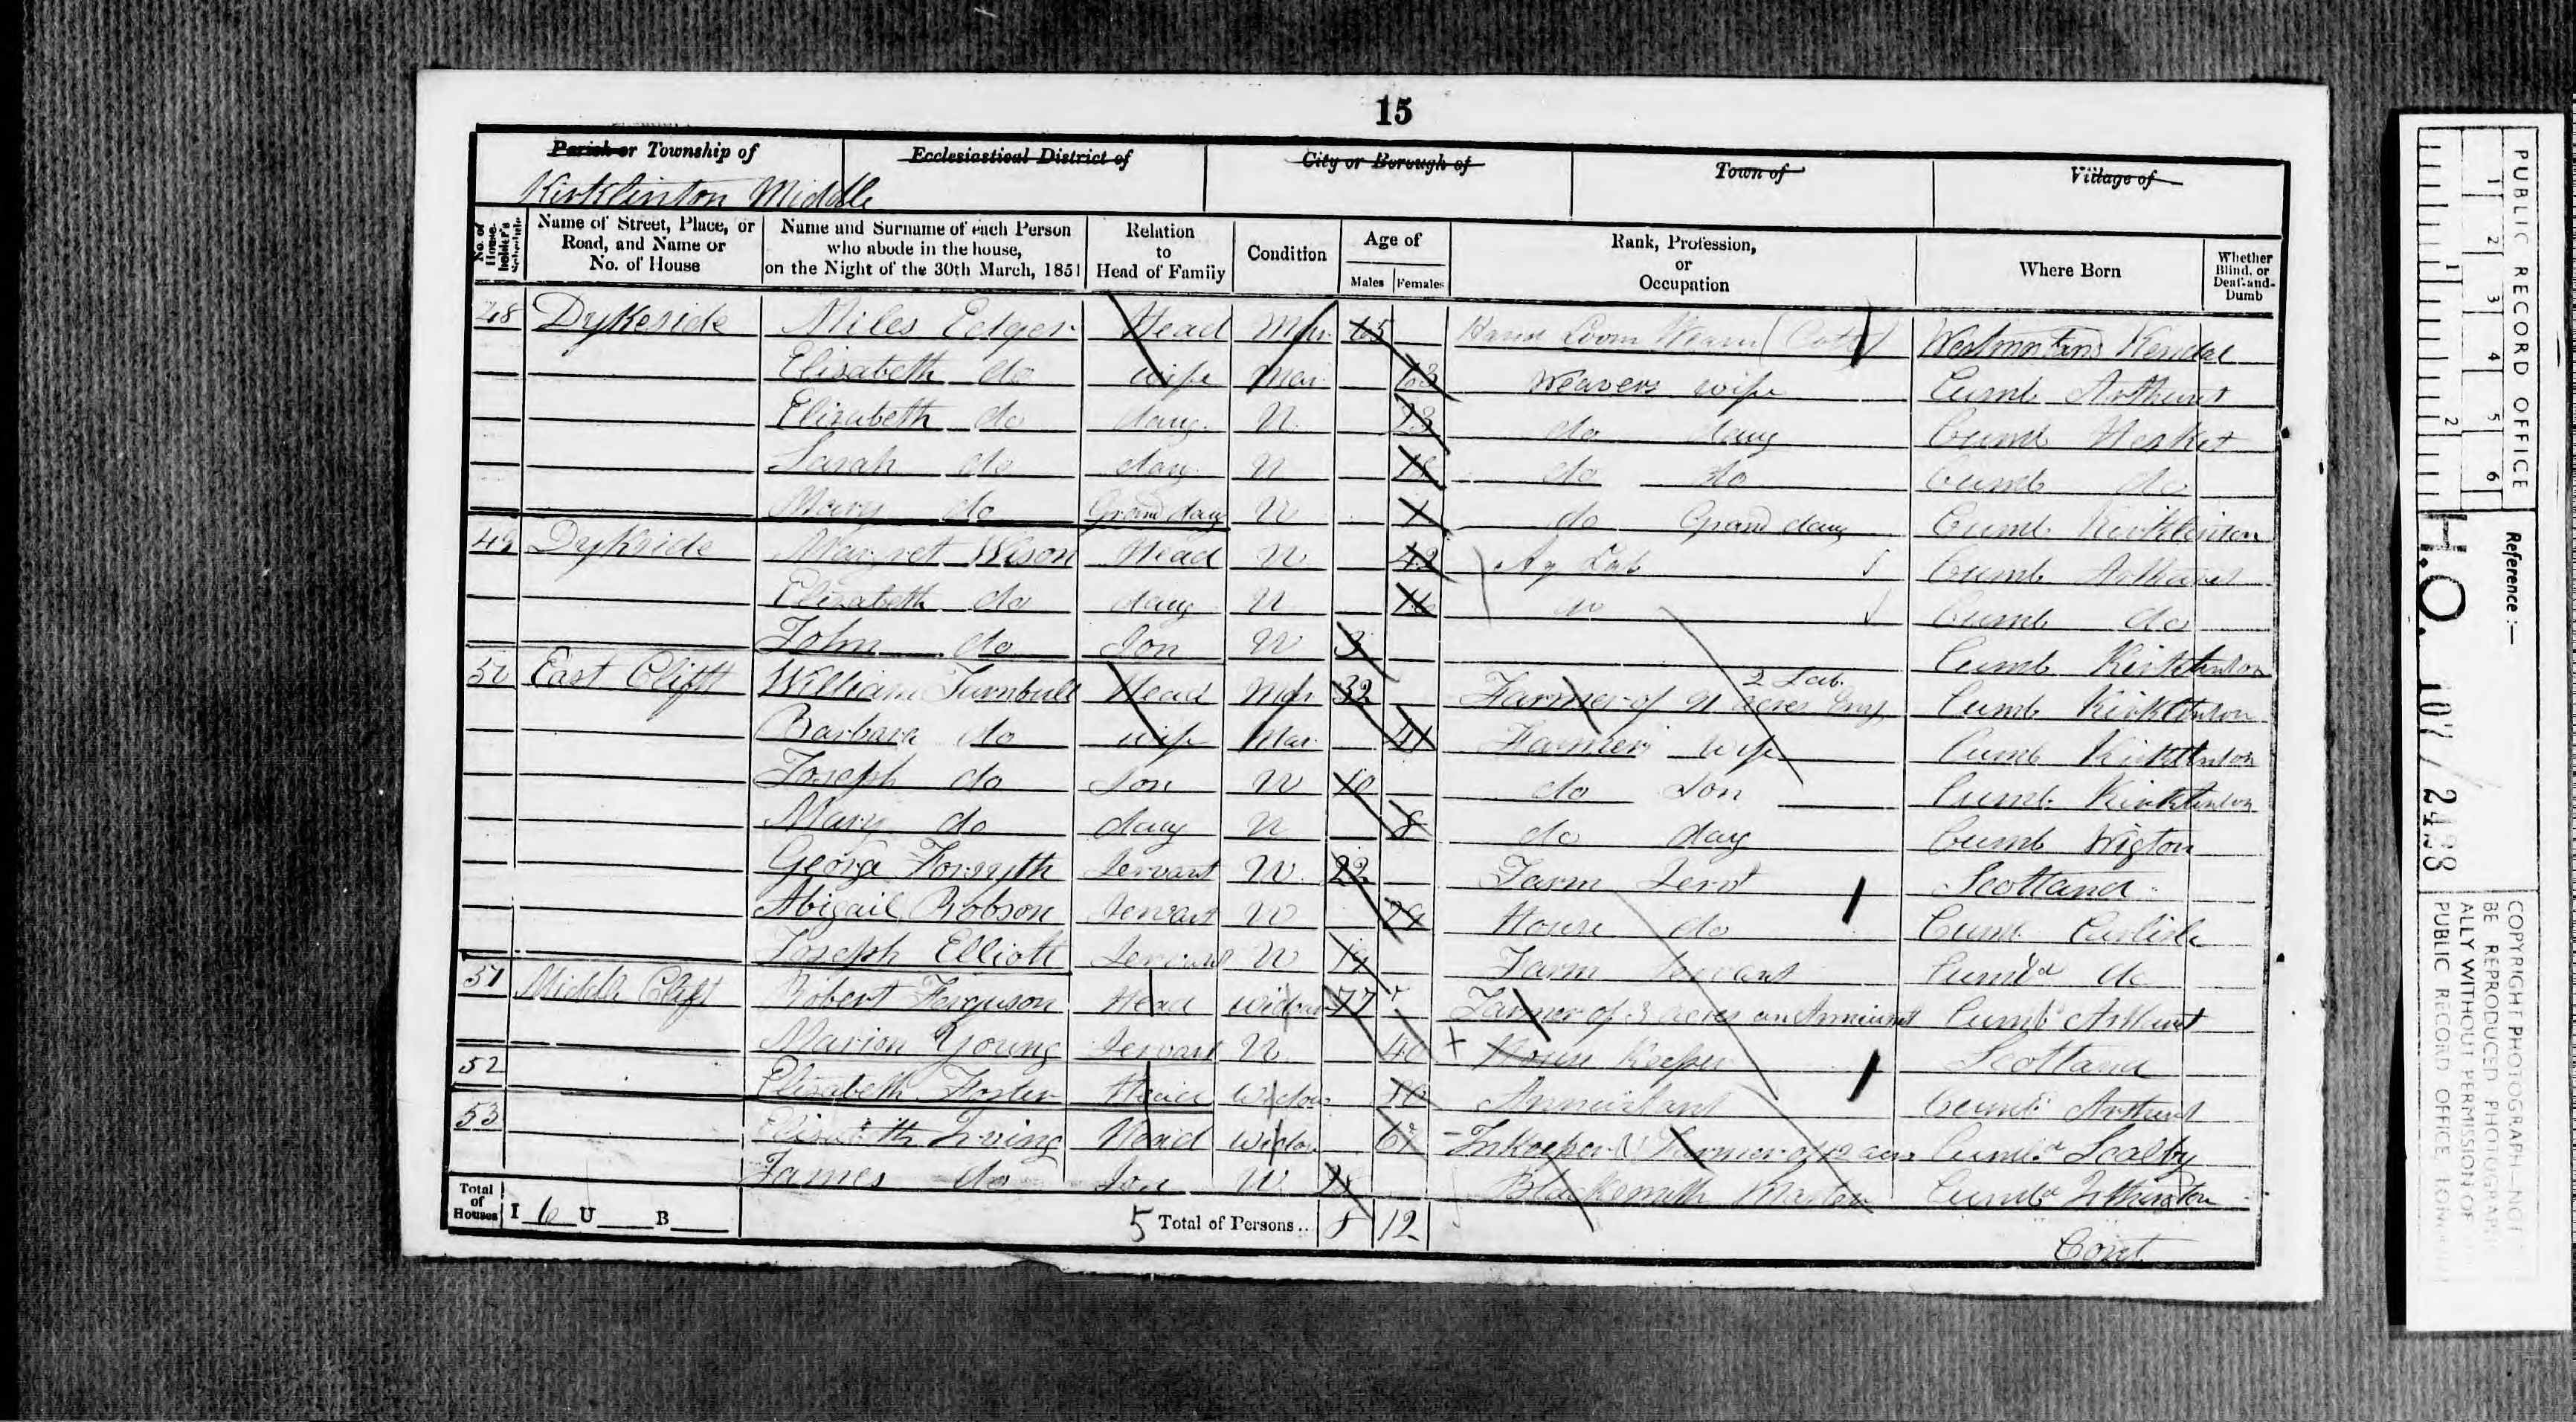 15
Parish or Township of Ecclesiastical District of City or Borough of Town of Village of
Kirklinton Middle
No. of House-holder's Schedule Name of Street, Place, or Road, and Name or No. of House Name and Surname of each Person who abode in the house, on the Night of the 30th March, 1851 Relation to Head of Family Condition Age of Males Females Rank, Profession, or Occupation Where Born Whether Blind, or Deaf-and-Dumb
48 Dykeside Miles Edger Head Mar 65 Hand Loom Kendal
Elisabeth do wife Mar 63 Weavers wife Cumb Arthuret
Elizabeth do daug U 23 do daug Cumb Hesket
Sarah do daug U do do Cumb do
Mary do Grand daug U 1 do Grand daug Cumb Kirklinton
49 Dykside Margret Wlson Head U 42 Ag Lab Cumb Arthuret
Elizabeth do daug U 16 do Cumb do
John do Son U 3 Cumb Kirklinton
50 East Clift William Turnbull Head Mar 32 Farmer of 91 acres Emg 2 Lab. Cumb Kirklinton
Barbara do wife Mar 41 Farmers wife Cumb Kirklinton
Joseph do Son U 10 do Son Cumb Kirklinton
Mary do daug U 8 do daug Cumb Wigton
George Forsyth Servant U 22 Farm Servt Scotland
Abigail Robson Servant U 24 House do Cumb Carlisle
Joseph Elliott Servant U 19 Farm Servant Cumbd do
51 Middle Clift Robert Ferguson Head Widower 77 Farmer of 3 acres Cumbd Arthuret
Marion Young Servant U 40 House Keeper Scotland
52 Elizabeth Foster Head Widow Annuitant Cumbd Arthuret
53 Elisabeth Irving Head Widow 67 Inkeeper & Farmer of 12 acres Cumbd Scalby
James do Son U 28 Blacksmith Master Cumbd Irthington
Total of Houses I 6 U B 5 Total of Persons.. 8 12
Cont
PUBLIC RECORD OFFICE
1 2 3 4 5 6
1 2
Reference:-
H.O. 107/2433
COPYRIGHT PHOTOGRAPH—NOT
BE REPRODUCED PHOTOGRAPHIC
ALLY WITHOUT PERMISSION OF
PUBLIC RECORD OFFICE LONDON